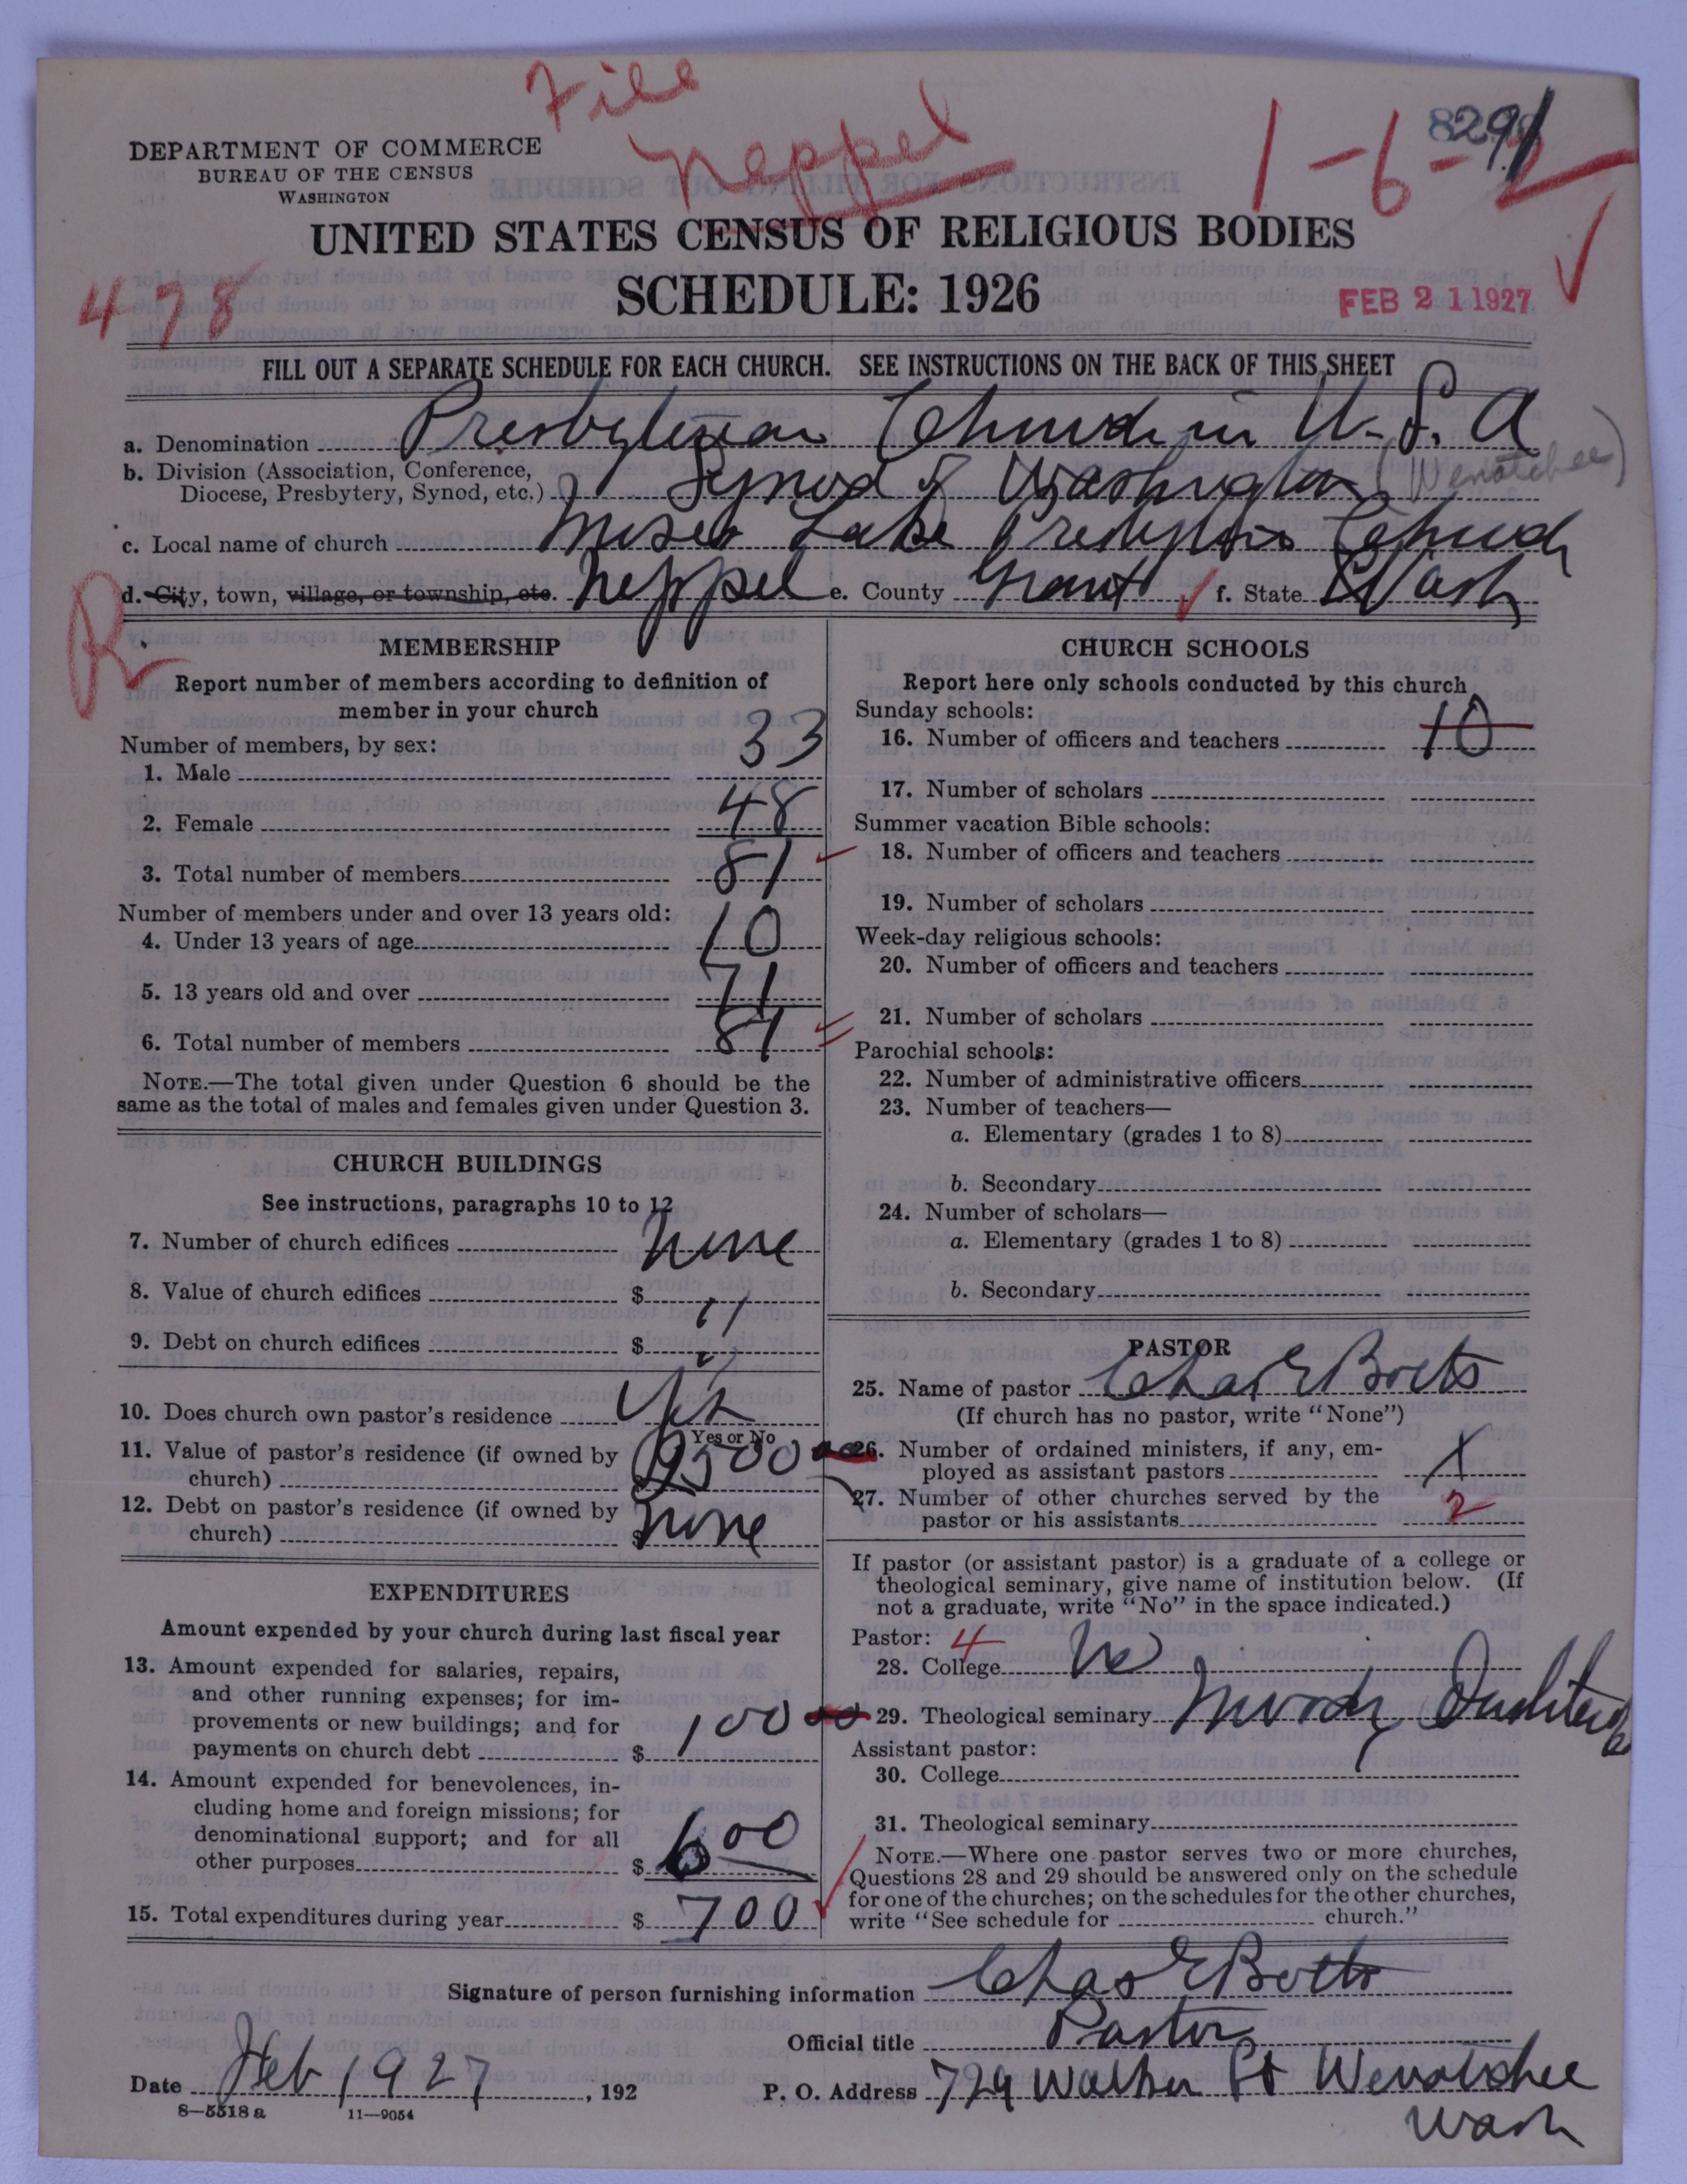 File
Neppel
1-6-2
8291
DEPARTMENT OF COMMERCE
BUREAU OF THE CENSUS
WASHINGTON
UNITED STATES CENSUS OF RELIGIOUS BODIES
SCHEDULE: 1926
478
FEB 21 1927
FILL OUT A SEPARATE SCHEDULE FOR EACH CHURCH. SEE INSTRUCTIONS ON THE BACK OF THIS SHEET
a. Denomination Presbyterian Church in U.S.A
b. Division (Association, Conference,
Diocese, Presbytery, Synod, etc.) Synod of Washington (Wenatchee)
c. Local name of church Moses Lake Presbyterian Church
d. City, town, village, or township, etc. Neppel e. County Grant f. State Wash
R
MEMBERSHIP
Report number of members according to definition of
member in your church
Number of members, by sex:
1. Male 33
2. Female 48
3. Total number of members 81
Number of members under and over 13 years old:
4. Under 13 years of age 10
5. 13 years old and over 71
6. Total number of members 81
NOTE.—The total given under Question 6 should be the
same as the total of males and females given under Question 3.
CHURCH BUILDINGS
See instructions, paragraphs 10 to 12
7. Number of church edifices none
8. Value of church edifices $ "
9. Debt on church edifices $ "
10. Does church own pastor's residence Yes
Yes or No
11. Value of pastor's residence (if owned by
church) $ 500 00
12. Debt on pastor's residence (if owned by
church) $ none
EXPENDITURES
Amount expended by your church during last fiscal year
13. Amount expended for salaries, repairs,
and other running expenses; for im-
provements or new buildings; and for
payments on church debt $ 100 00
14. Amount expended for benevolences, in-
cluding home and foreign missions; for
denominational support; and for all
other purposes $ 600
15. Total expenditures during year $ 700
CHURCH SCHOOLS
Report here only schools conducted by this church
Sunday schools:
16. Number of officers and teachers 10
17. Number of scholars
Summer vacation Bible schools:
18. Number of officers and teachers
19. Number of scholars
Week-day religious schools:
20. Number of officers and teachers
21. Number of scholars
Parochial schools:
22. Number of administrative officers
23. Number of teachers—
a. Elementary (grades 1 to 8)
b. Secondary
24. Number of scholars—
a. Elementary (grades 1 to 8)
b. Secondary
PASTOR
25. Name of pastor Chas E Boets
(If church has no pastor, write "None")
26. Number of ordained ministers, if any, em-
ployed as assistant pastors X
27. Number of other churches served by the
pastor or his assistants 2
If pastor (or assistant pastor) is a graduate of a college or
theological seminary, give name of institution below. (If
not a graduate, write "No" in the space indicated.)
Pastor: 4
28. College No
29. Theological seminary Moody
Assistant pastor:
30. College
31. Theological seminary
NOTE.—Where one pastor serves two or more churches,
Questions 28 and 29 should be answered only on the schedule
for one of the churches; on the schedules for the other churches,
write "See schedule for church."
Signature of person furnishing information Chas E Boets
Official title Pastor
Date Feb 1927, 192 P. O. Address 729 Walker St Wenatchee
Wash
8—5518 a 11—9054